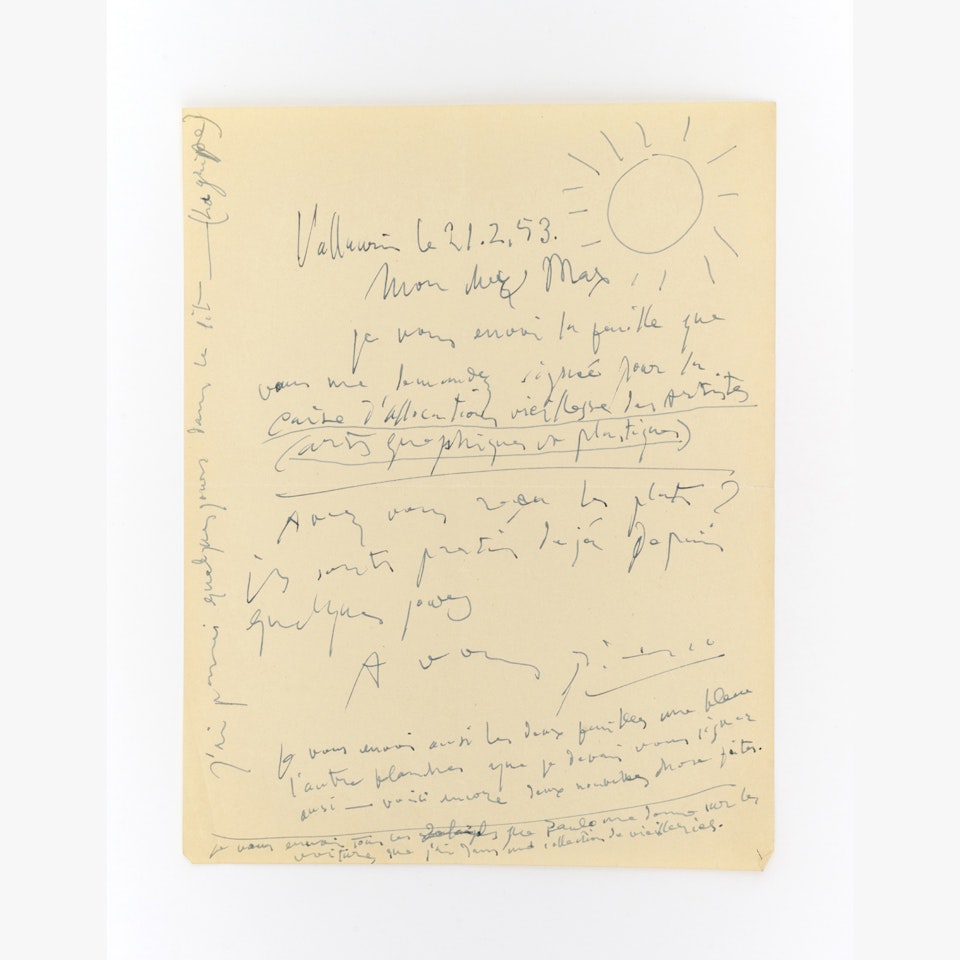 Vallauris le 21.2.53.
Mon cher Max
je vous envoi la feuille que
vous me demandez signée pour la
caisse d'allocation vieillesse des Artistes
(arts graphiques et plastiques)
Avez vous reçu les plats?
ils sont partis dejá depuis
quelques jours
A vous Picasso
je vous envoi aussi les deux feuilles une bleue
l'autre blanche que je devais vous signer
aussi — voici encore deux nouvelles choses faites.
je vous envoi tous ces que Paulo me donne sur les
voitures que j'ai dans ma collection de vieilleries.
J'ai passé quelques jours dans le lit — (la grippe)